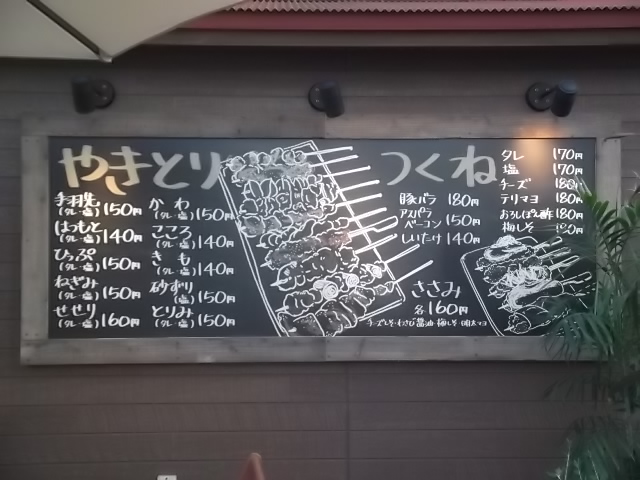 やきとり
手羽先
(タレ・塩) 150円
はつもと
(タレ・塩) 140円
ひっぷ
(タレ・塩) 150円
ねぎみ
(タレ・塩) 150円
せせり
(タレ・塩) 160円
かわ
(タレ・塩) 150円
こころ
(タレ・塩) 140円
きも
(タレ・塩) 140円
砂ずり
(塩) 150円
とりみ
(タレ・塩) 150円
豚バラ 180円
アスパラ
ベーコン 150円
しいたけ 140円
つくね
タレ 170円
塩 170円
チーズ 180円
テリマヨ 180円
おろしぽん酢 180円
梅しそ 180円
ささみ
各160円
チーズしそ・わさび醤油・梅しそ・明太マヨ